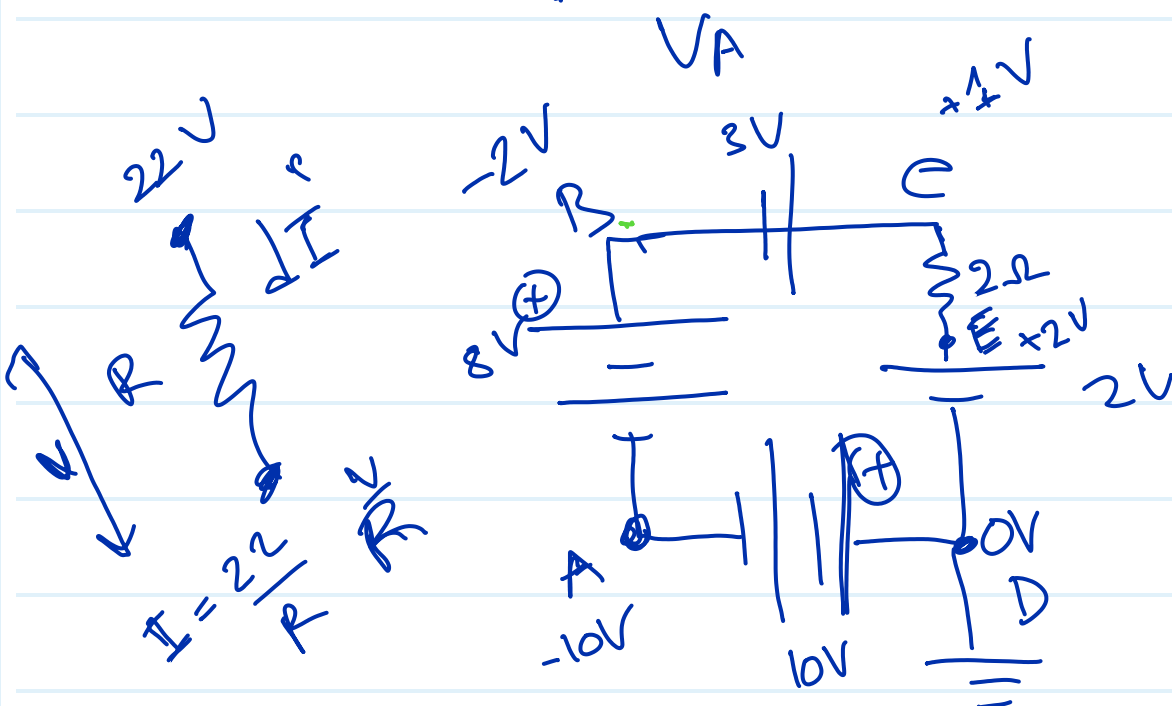 V_A
+1V
22 V
-2V
3V
B
C
I
2Ω
⊕
8V
E +2V
2V
R
V
V/R
⊕
0V
A
D
I = 22/R
-10V
10V